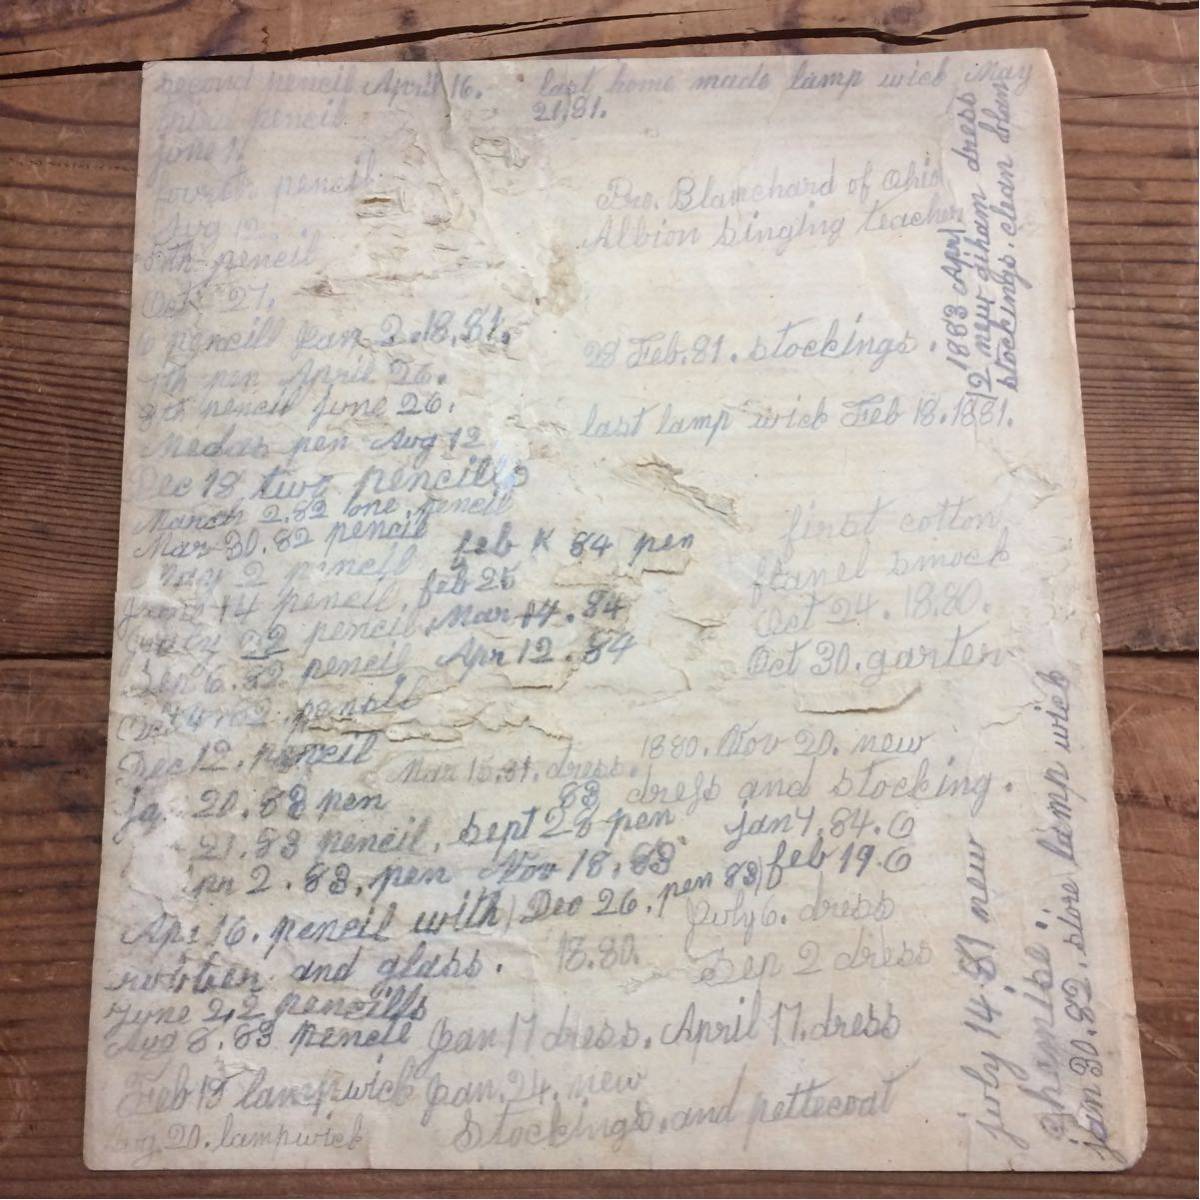 second pencil April 16.
third pencil
june 1.
fourth pencil
Aug 12
5th pencil
Oct 27.
6 pencill Jan 2.18,81.
7th pen April 26.
8th pencil june 26.
Medas pen Aug 12
Dec 18 two pencills
March 2.82 one pencil
Mar 30.82 pencil
May 2 pencil
june 14 pencil.
july 22 pencil.
Sep 6.82 pencil
pencil
Dec 12. pencil
jan 20.83 pen
21.83 pencil.
Apr 2.83, pen
Apr 16. pencil with
rubber and glass.
june 2,2 pencills
Aug 8.83 pencil
Feb 18 lampwick
Aug 20. lampwick
last home made lamp wick May
21,81.
Pro. Blanchard of Ohio
Albion singing teacher
28 Feb.81. stockings.
last lamp wick Feb 18.1881.
first cotton
flanel smock
Oct 24. 18.80.
Oct 30. garten
feb 84 pen
feb 25
Mar 14.84
Apr 12.84
1880. Nov 20. new
dress and stocking.
Mar 15.81. dress.
83
Sept 28 pen
jan 4.84.
Nov 18.83
feb 19.
Dec 26. pen 83
july 6. dress
18.80.
Sep 2 dress
Jan 17 dress. April 17. dress
Jan. 24. new
stockings. and pettecoat
1883 Apr
12 new giham dress
stockings. clean
july 14.81 new
shemise.
jan 30.82. store lamp wick